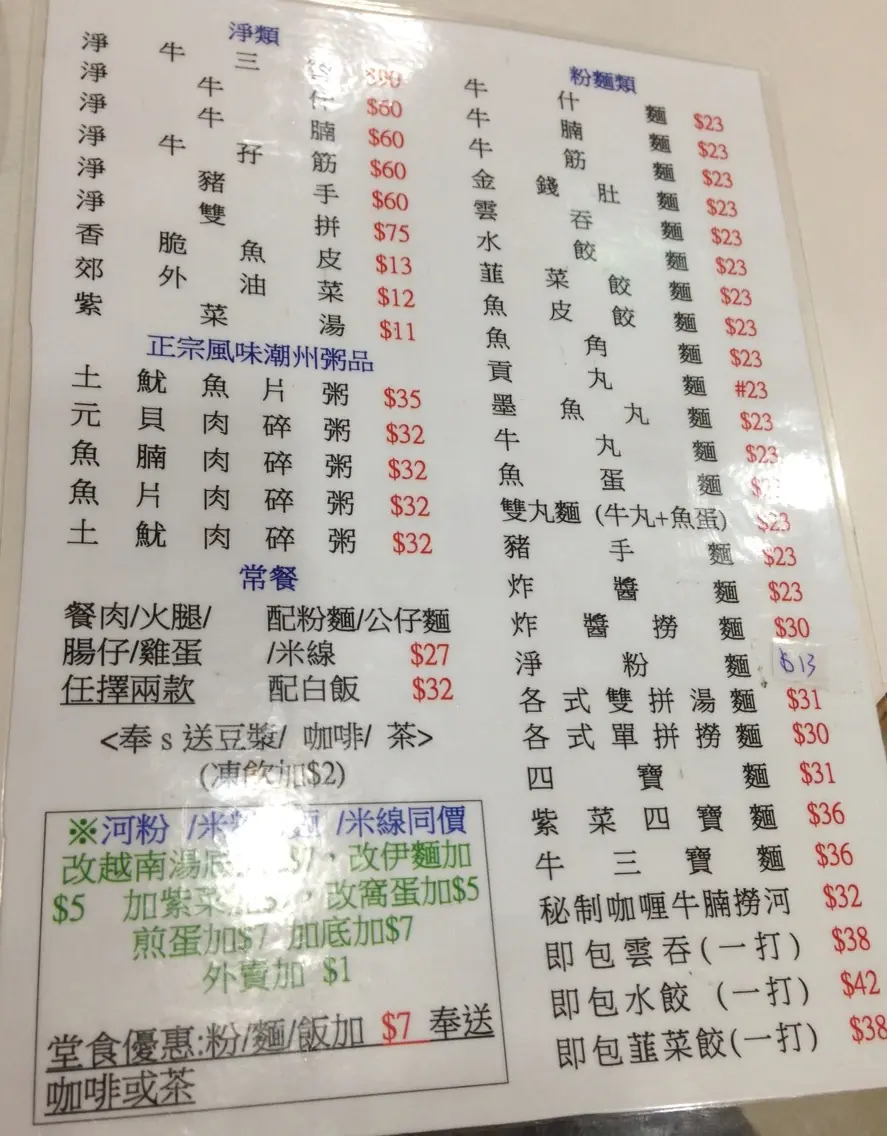 淨類
淨 牛 三
淨 牛 什 $60
淨 牛 腩 $60
淨 牛 孖 筋 $60
淨 豬 手 $60
淨 雙 拼 $75
香 脆 魚 皮 $13
郊 外 油 菜 $12
紫 菜 湯 $11
正宗風味潮州粥品
土 魷 魚 片 粥 $35
元 貝 肉 碎 粥 $32
魚 腩 肉 碎 粥 $32
魚 片 肉 碎 粥 $32
土 魷 肉 碎 粥 $32
常餐
餐肉/火腿/ 配粉麵/公仔麵
腸仔/雞蛋 /米線 $27
任擇兩款 配白飯 $32
<奉 s 送豆漿/ 咖啡/ 茶>
(凍飲加$2)
※河粉 /米 /米線同價
改越南湯底 $7，改伊麵加
$5 加紫菜 ，改窩蛋加$5
煎蛋加$7 加底加$7
外賣加 $1
堂食優惠:粉/麵/飯加 $7 奉送
咖啡或茶
粉麵類
牛 什 麵 $23
牛 腩 麵 $23
牛 筋 麵 $23
金 錢 肚 麵 $23
雲 吞 麵 $23
水 餃 麵 $23
韮 菜 餃 麵 $23
魚 皮 餃 麵 $23
魚 角 麵 $23
貢 丸 麵 #23
墨 魚 丸 麵 $23
牛 丸 麵 $23
魚 蛋 麵
雙丸麵 (牛丸+魚蛋) $23
豬 手 麵 $23
炸 醬 麵 $23
炸 醬 撈 麵 $30
淨 粉 麵 $13
各 式 雙 拼 湯 麵 $31
各 式 單 拼 撈 麵 $30
四 寶 麵 $31
紫 菜 四 寶 麵 $36
牛 三 寶 麵 $36
秘制咖喱牛腩撈河 $32
即包雲吞(一打) $38
即包水餃 (一打) $42
即包韮菜餃(一打) $38